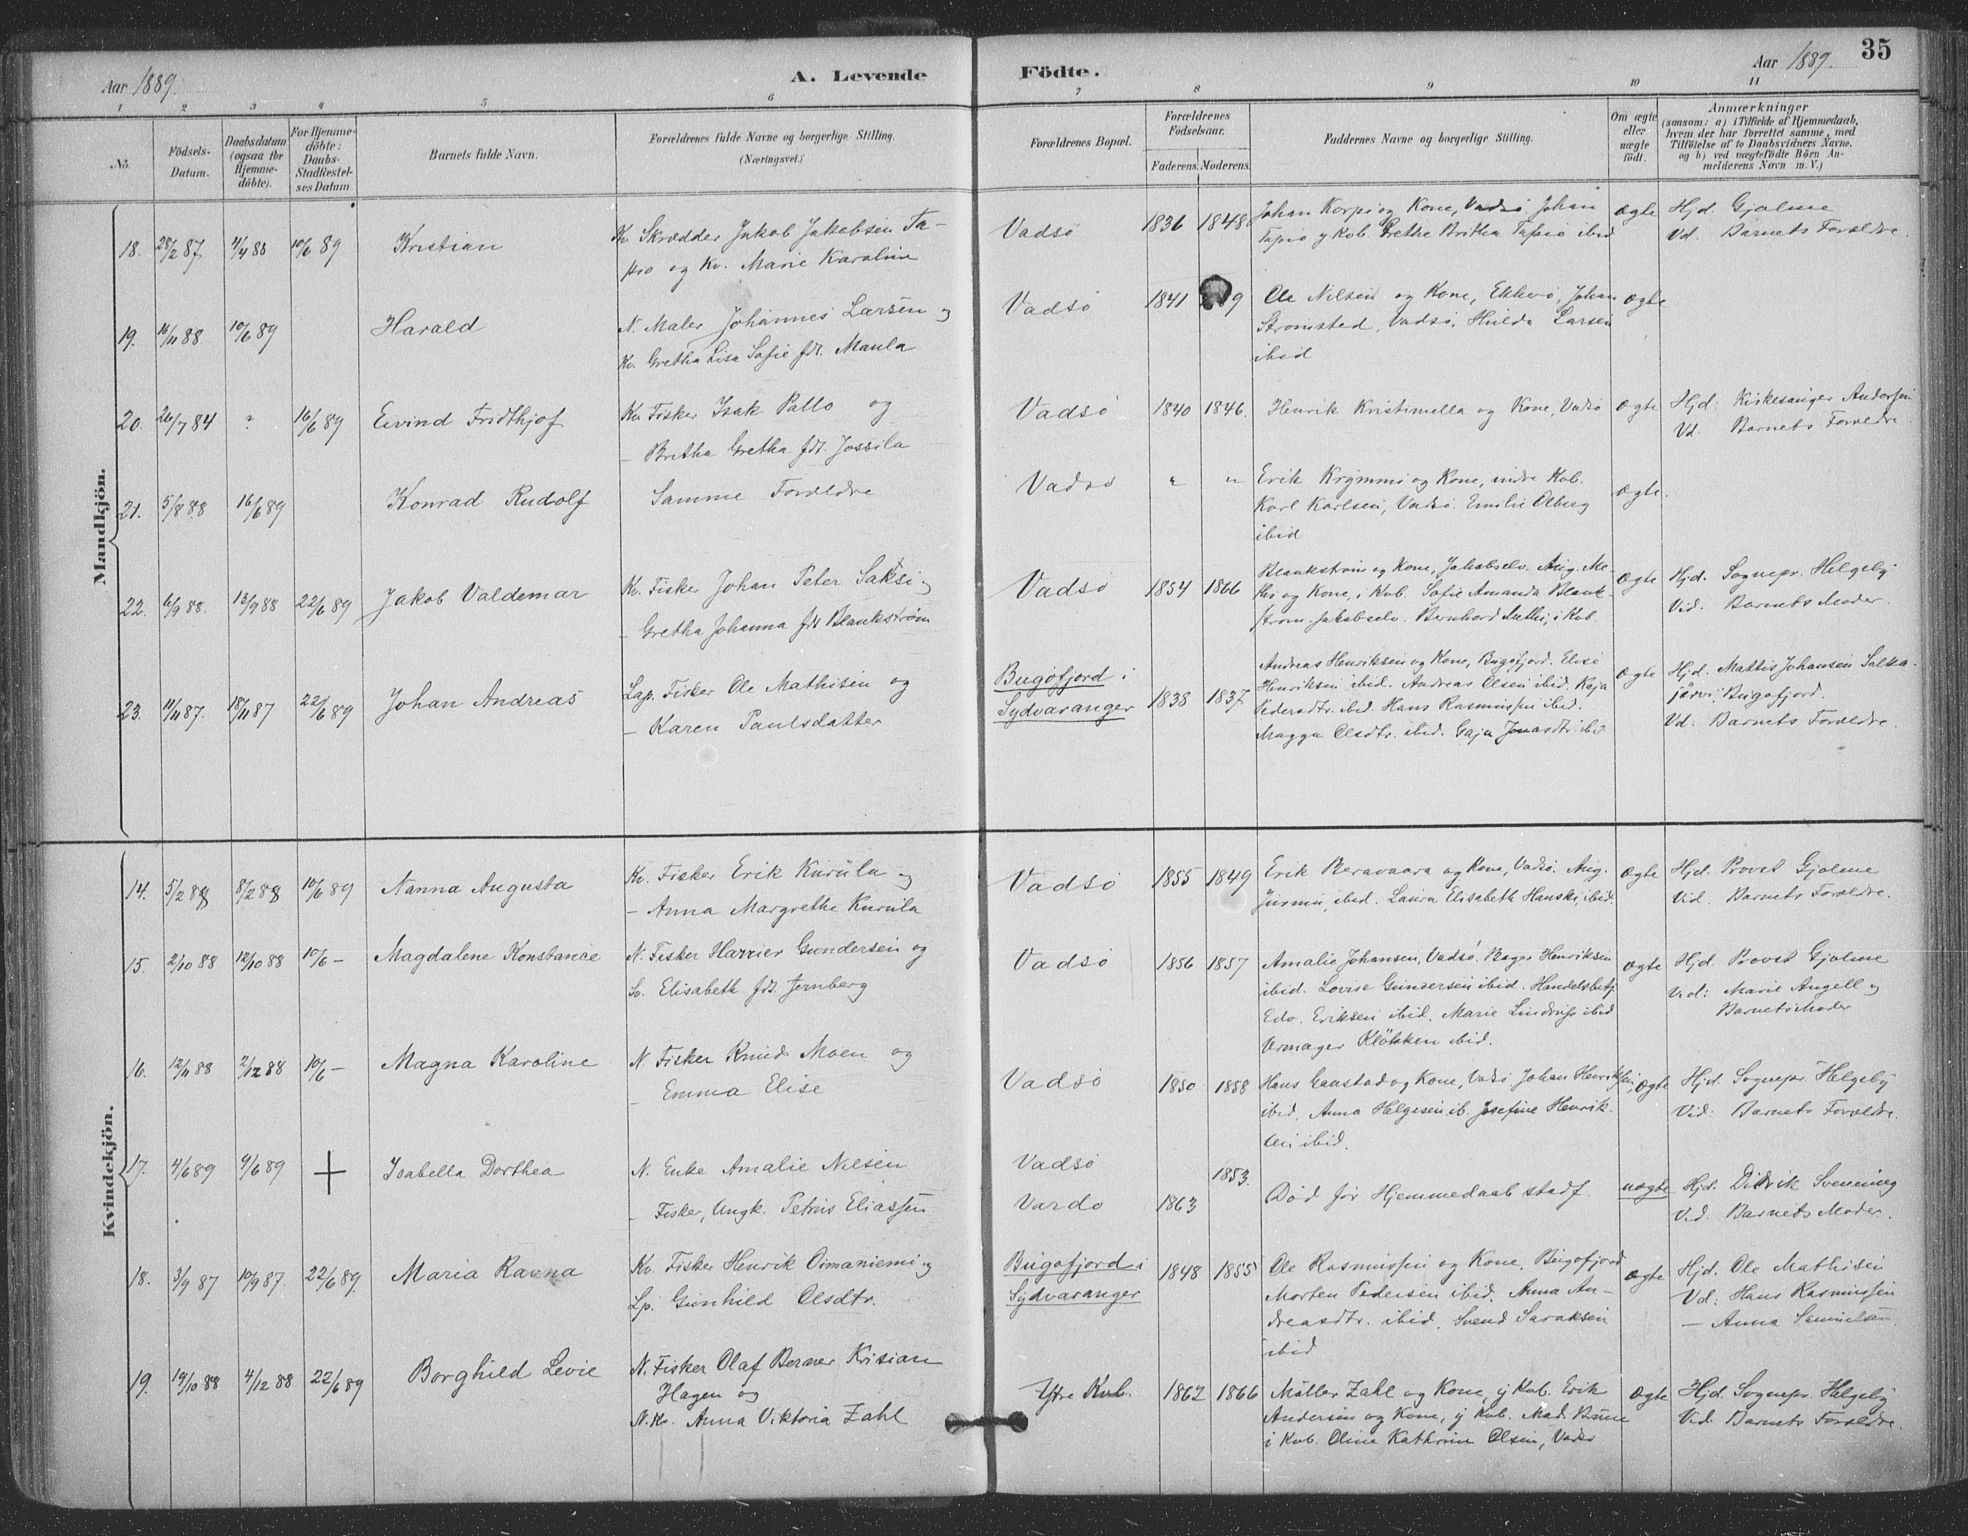 Aar 1889.
A. Levende
Födte.
Aar 1889.
35
1 2 3 4 5 6 7 8 9 10 11
No.
Födsels-
Datum.
Daabsdatum
(ogsaa for
Hjemme-
döbte).
For Hjemme-
döbte:
Daabs-
Stadfæstel-
ses Datum
Barnets fulde Navn.
Forældrenes fulde Navne og borgerlige Stilling.
(Næringsvei.)
Forældrenes Bopæl.
Forældrenes
Födselsaar.
Faderens. Moderens.
Faddernes Navne og borgerlige Stilling.
Om ægte
eller
uægte
födt.
Anmærkninger
(saasom: a) i Tilfælde af Hjemmedaab,
hvem der har forrettet samme, med
Tilföielse af to Daabsvidners Navne,
og b) ved uægtefödte Börn An-
melderens Navn m. V.)
Mandkjön.
18. 28/2 87 4/4 88 10/6 89 Kristian
Kv. Skrædder Jakob Jakobsen Ta-
pio og Kv. Marie Karoline
Vadsö 1836 1848
Johan Korpi og Kone, Vadsö. Johan
Tapio y Kvb. Grethe Britha Tapio ibid
Ægte
Hjd. Gjølme
Vd. Barnets Forældre.
19. 16/11 88 10/6 89 Harald
N. Maler Johannes Larsen og
Kv. Gretha Lisa Sofie fdt. Maula
Vadsö 1841 9
Ole Nilsen og Kone, Ekkerö, Johan
Strömsted, Vadsö, Hulda Larsen
ibid
Ægte
20. 26/7 84 ? 16/6 89 Eivind Fridthjof
Kv. Fisker Isak Pallo og
— Britha Gretha fdt. Jossila
Vadsö 1840 1846.
Henrik Kristimella og Kone, Vadsö
Ægte
Hjd. Kirkesanger Andersen
Vd. Barnets Forældre.
21. 5/8 88 16/6 89 Konrad Rudolf
Samme Forældre
Vadsö " "
Erik Krymmi og Kone, indre Kvb.
Karl Karlsen, Vadsö. Emilie Olberg
ibid
Ægte.
22. 6/9 88. 13/9 88 22/6 89 Jakob Valdemar
Kv. Fisker Johan Peter Saksi og
— Gretha Johanna fdt Blankström
Vadsö 1854 1866
Blankström og Kone, Jakobselv. Aug. Me-
 og Kone, i Kvb. Sofie Amanda Blank-
ström. Jakobselv. Bernhard , i Kvb.
Ægte
Hjd. Sognepr. Helgeby
Vid. Barnets Moder.
23. 11/11 87. 18/11 87 22/6 89 Johan Andreas
Lap. Fisker Ole Mathisen og
— Karen Paulsdatter
Bugöfjord i
Sydvaranger
1838 1837
Andreas Henriksen og Kone, Bugöfjord. Elise
Henriksen ibid. Andreas Olsen ibid. Kaja
Pedersdtr. ibid. Hans Rasmussen ibid.
Magga Olsdtr. ibid. Gaja Jonasdtr. ibid
Ægte
Hjd. Mattis Johansen Salka-
järvi, Bugöfjord.
Vd. Barnets Forældre.
Kvindekjön.
14. 5/2 88 8/2 88 10/6 89 Nanna Augusta
Kv. Fisker Erik Kurula og
— Anna Margrethe Kurula
Vadsö 1855 1849
Erik Peravaara og Kone, Vadsö. Aug.
Jurmu, ibid. Laura Elisabeth Hanski, ibid.
Ægte
Hjd. Provst Gjølme
Vid. Barnets Forældre.
15. 2/10 88 12/10 88 10/6 — Magdalene Konstance
N. Fisker Harrier Gundersen og
Sv. Elisabeth fdt. Jernberg
Vadsö 1856 1857
Amalie Johansen, Vadsö. Bager Henriksen
ibid. Lovise Gundersen ibid. Handelsbetj.
Edv. Eriksen ibid. Marie ibid
Urmager Klökken ibid.
Ægte
Hjd. Provst Gjølme
Vid: Marie Angell og
Barnets Moder
16. 12/11 88 2/12 88 10/6 — Magna Karoline
N. Fisker Knud Moen og
— Emma Elise
Vadsö 1850 1858
Hans Gaustad og Kone, Vadsö Johan Henriksen,
ibid, Anna Helgesen ib. Josefine Henrik-
sen ibid.
Ægte
Hjd. Sognepr. Helgeby
Vid: Barnets Forældre.
17. 4/6 89 9/6 89 + Isabella Dorthea
N. Enke Amalie Nilsen
— Fisker, Ungk. Petrus Eliassen
Vadsö 1853.
Vardö 1863
Död för Hjemmedaab stadf.
uægte
Hjd. Didrik Svenning
Vid. Barnets Moder.
18. 3/9 87 10/9 87. 22/6 89. Maria Ravna
Kv. Fisker Henrik Oimaniemi og
Lp. Gunhild Olsdtr.
Bugöfjord i
Sydvaranger
1848 1855
Ole Rasmussen og Kone, Bugöfjord
Morten Pedersen ibid. Anna An-
dreasdtr. ibid. Svend Saraksen
ibid
Ægte
Hjd. Ole Mathisen
Vd: Hans Rasmussen
— Anna Samuelsen
19. 19/10 88 4/12 88 22/6 89 Borghild Levie
N. Fisker Olaf Berner Kristian
Hagen og
N. Kv. Anna Viktoria Zahl
Ytre Kvb. 1862 1866
Möller Zahl og Kone, y Kvb. Erik
Andersen og Kone, y Kvb. Mad. Bune
i Kvb. Oline Kathrine Olsen, Vadsö
Ægte
Hjd. Sognepr. Helgeby
Vid. Barnets Forældre.